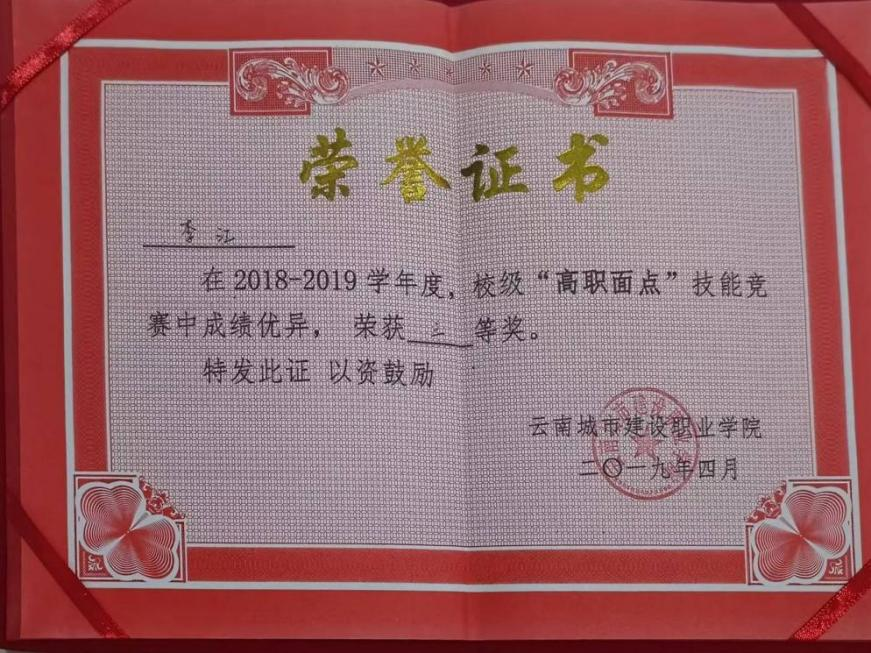 荣誉证书
李江
在2018-2019学年度，校级“高职面点”技能竞
赛中成绩优异， 荣获三等奖。
特发此证 以资鼓励
云南城市建设职业学院
二〇一九年四月